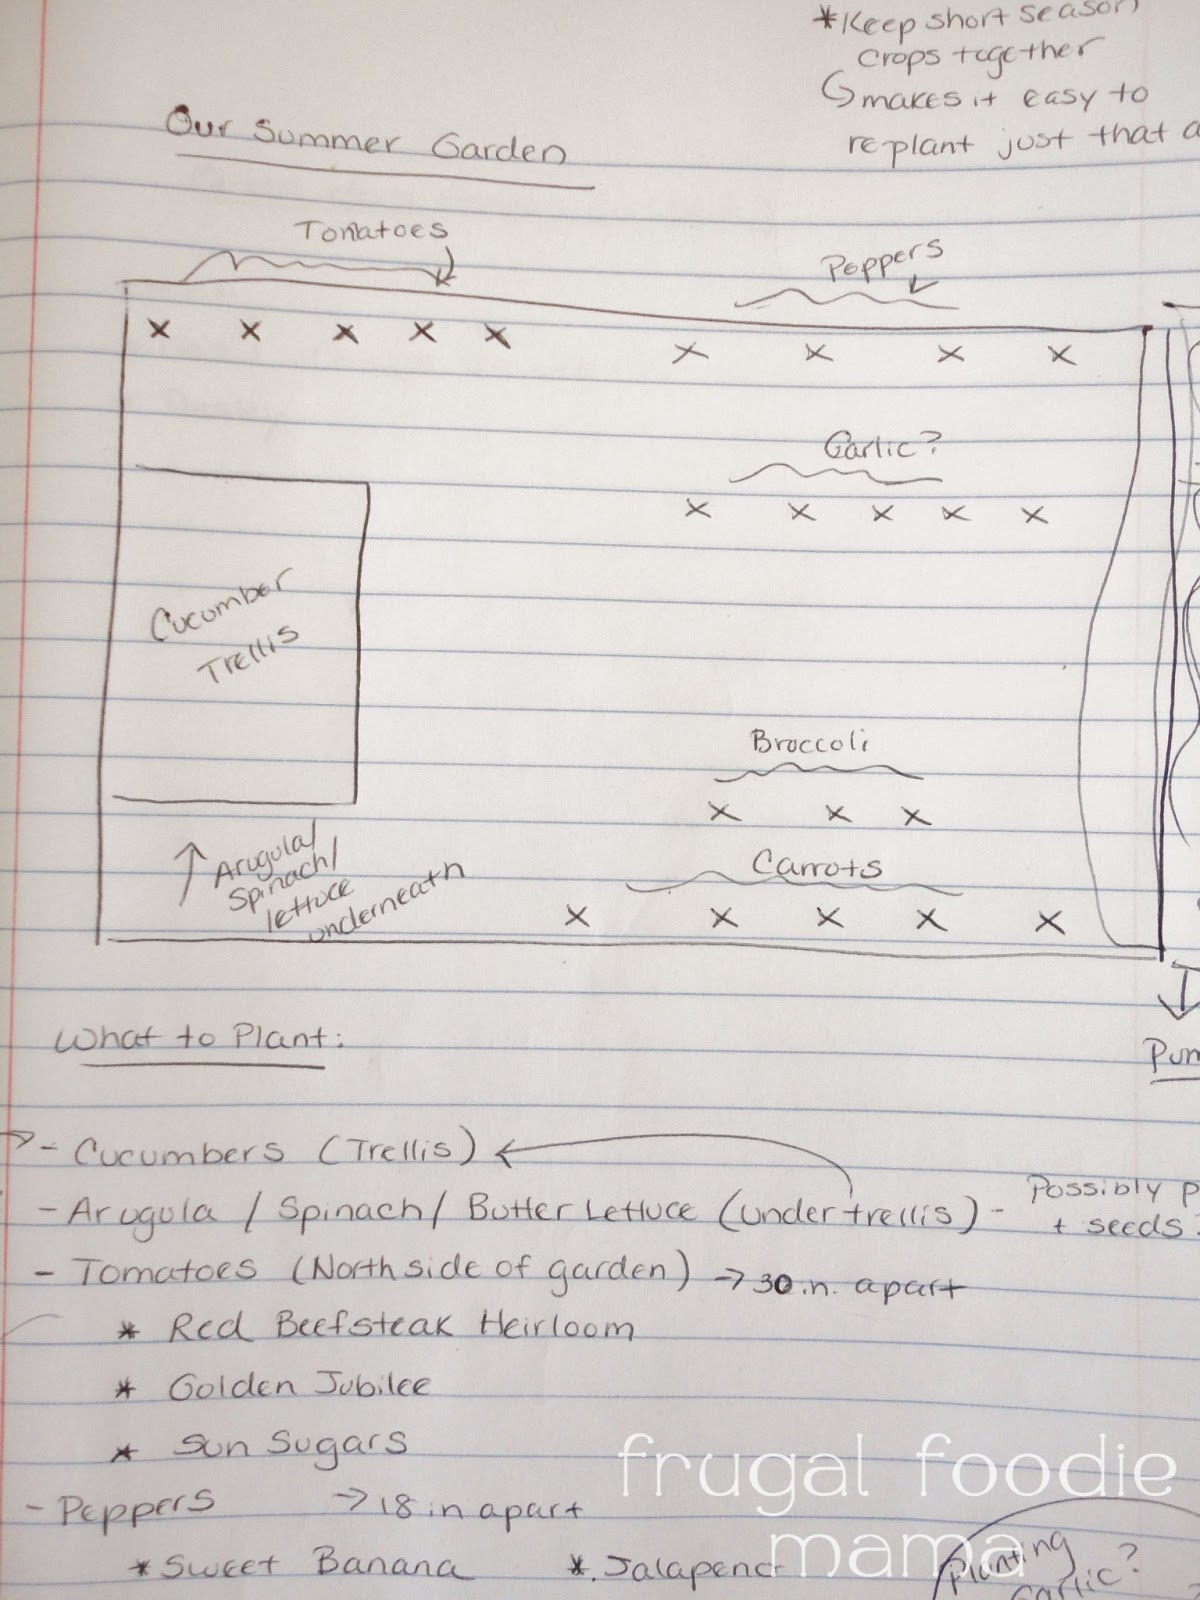 *Keep short season
crops together
makes it easy to
replant just that
Our Summer Garden
Tomatoes
Peppers
x x x x x
x x x x
Garlic?
x x x x x
Cucumber
Trellis
Broccoli
x x x
Arugula/
Spinach/
lettuce
underneath
Carrots
x x x x x
What to Plant:
- Cucumbers (Trellis)
- Arugula / Spinach / Butter Lettuce (under trellis) - Possibly
+ seeds?
- Tomatoes (North side of garden) → 30 in. apart
* Red Beefsteak Heirloom
* Golden Jubilee
* Sun Sugars
- Peppers → 18 in apart
* Sweet Banana * Jalapeno
Planting
Garlic?
frugal foodie
mama